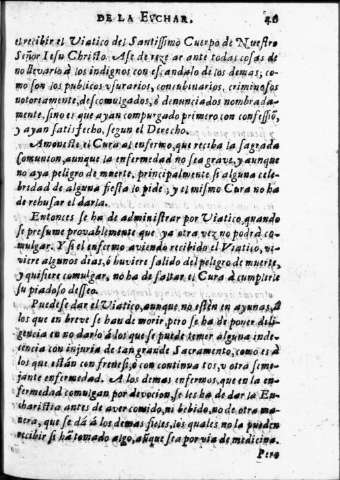 DE LA EVCHAR. 46
el recibir el Viatico del Santissimo Cuerpo de Nuestro
Señor Iesu Christo. Ase de rezelar ante todas cosas de
no llevarlo à los indignos con escandalo de los demas; co-
mo son los publicos vsurarios, concubinarios, criminosos
notoreamente, descomulgados, ò denunciados nombrada-
mente, sino es que ayan compurgado primero con confessiõ,
y ayan satisfecho, segun el Derecho.
Amoneste el Cura al enfermo, que reciba la sagrada
comunion, aunque la enfermedad no sea grave, y aunque
no aya peligro de muerte, principalmente si alguna cele-
bridad de alguna fiesta lo pide; y el mismo Cura no ha
de rehusar el darla.
Entonces se ha de administrar por Viatico, quando
se presume provablemente que ya otra vez no podrà co-
mulgar. Y si el enfermo aviendo recibido el Viatico, vi-
viere algunos dias, ò huviere salido del peligro de muerte,
y quisiere comulgar, no ha de faltar el Cura à cumplirle
su piadoso desseo.
Puedese dar el Viatico, aunque no estèn en ayunas, à
los que en breve se han de morir, pero se ha de poner dili-
gencia en no darlo à los que se puede temer alguna inde-
cencia con injuria de tan grande Sacramento, como es à
los que estàn con frenesi, ò con continua tos, v otra seme-
jante enfermedad. A los demas enfermos, que en la en-
fermedad comulgan por devocion, se les ha de dar la Eu-
charistia antes de aver comido, ni bebido, no de otra ma-
nera, que se dà à los demas fieles, los quales no la pueden
recibir si hã tomado algo, aũque sea por via de medicina.
Pero